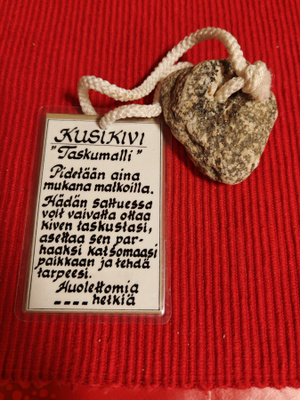 KUSIKIVI
"Taskumalli"
Pidetään aina
mukana matkoilla.
Hädän sattuessa
voit vaivatta ottaa
kiven taskustasi,
asettaa sen par-
haaksi katsomaasi
paikkaan ja tehdä
tarpeesi.
Huolettomia
---- hetkiä